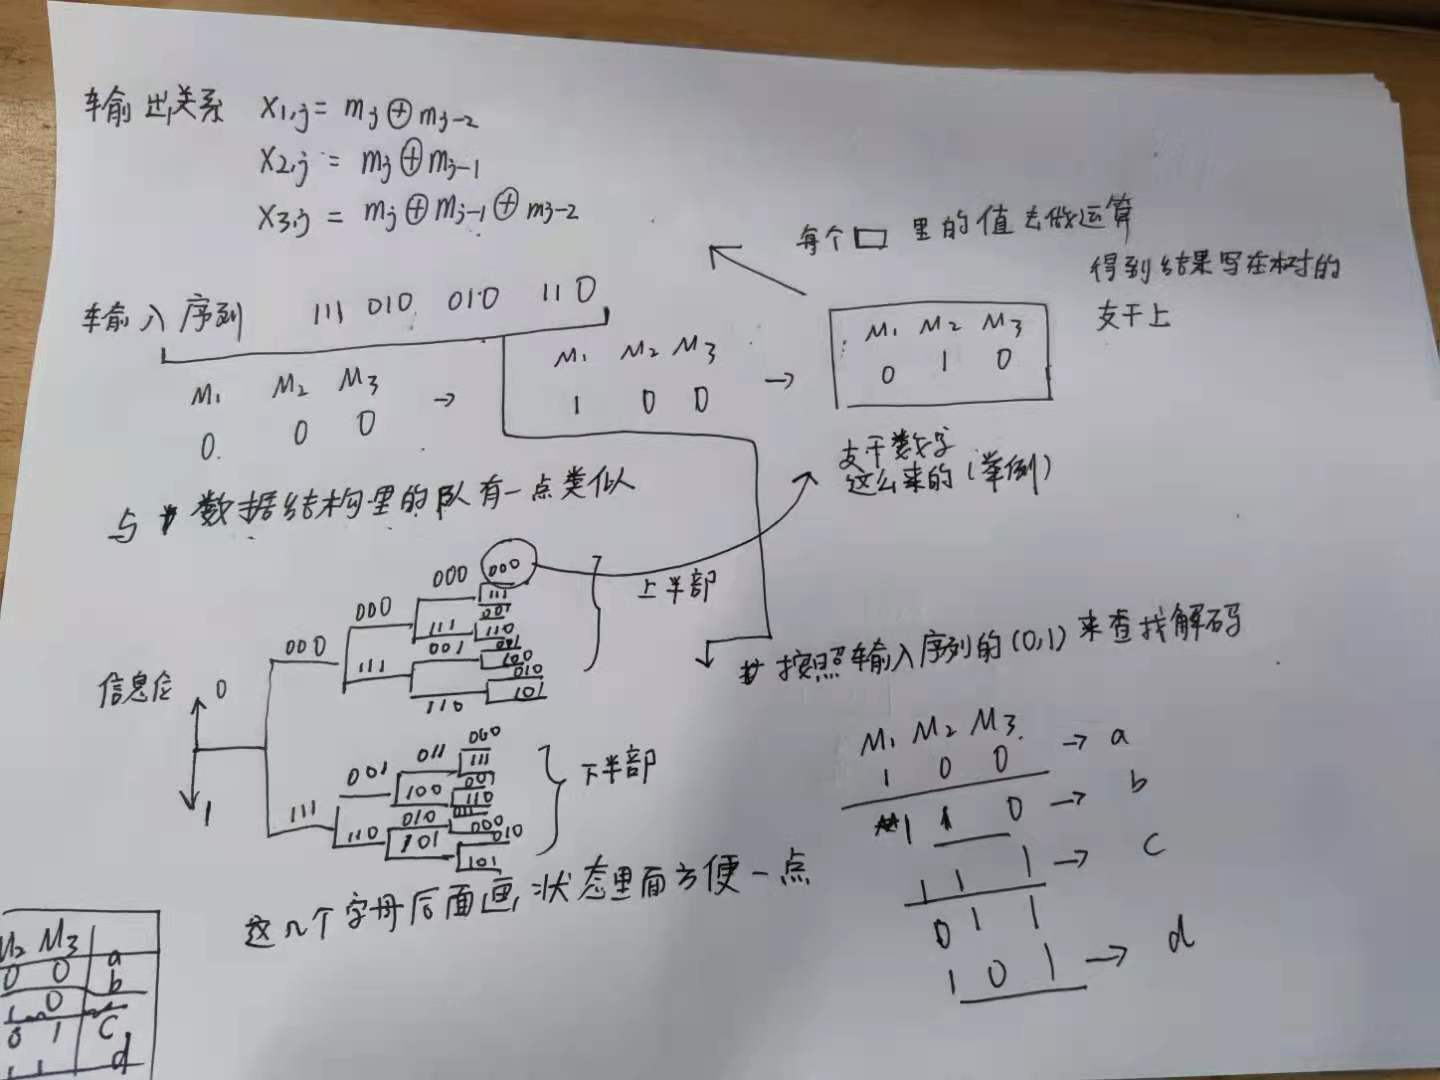 输出关系 X1,j = mj⊕mj-2
X2,j = mj⊕mj-1
X3,j = mj⊕mj-1⊕mj-2
每个□里的值去做运算
得到结果写在树的
支干上
输入序列 111 010 010 110
M1 M2 M3
0 0 0
→
M1 M2 M3
1 0 0
→
M1 M2 M3
0 1 0
支干数字
这么来的(举例)
与数据结构里的队有一点类似
000
000
000
000
111
001
111
110
001
111
001
100
010
110
101
上半部
信息位
0
1
按照输入序列的(0,1)来查找解码
000
011
111
001
001
100
110
111
010
111
110
000
101
010
101
下半部
M1 M2 M3
1 0 0 → a
1 1 0 → b
1 1 1 → c
0 1 1
1 0 1 → d
这几个字母后面画状态里面方便一点
M2 M3
0 0 a
1 0 b
0 1 c
1 1 d